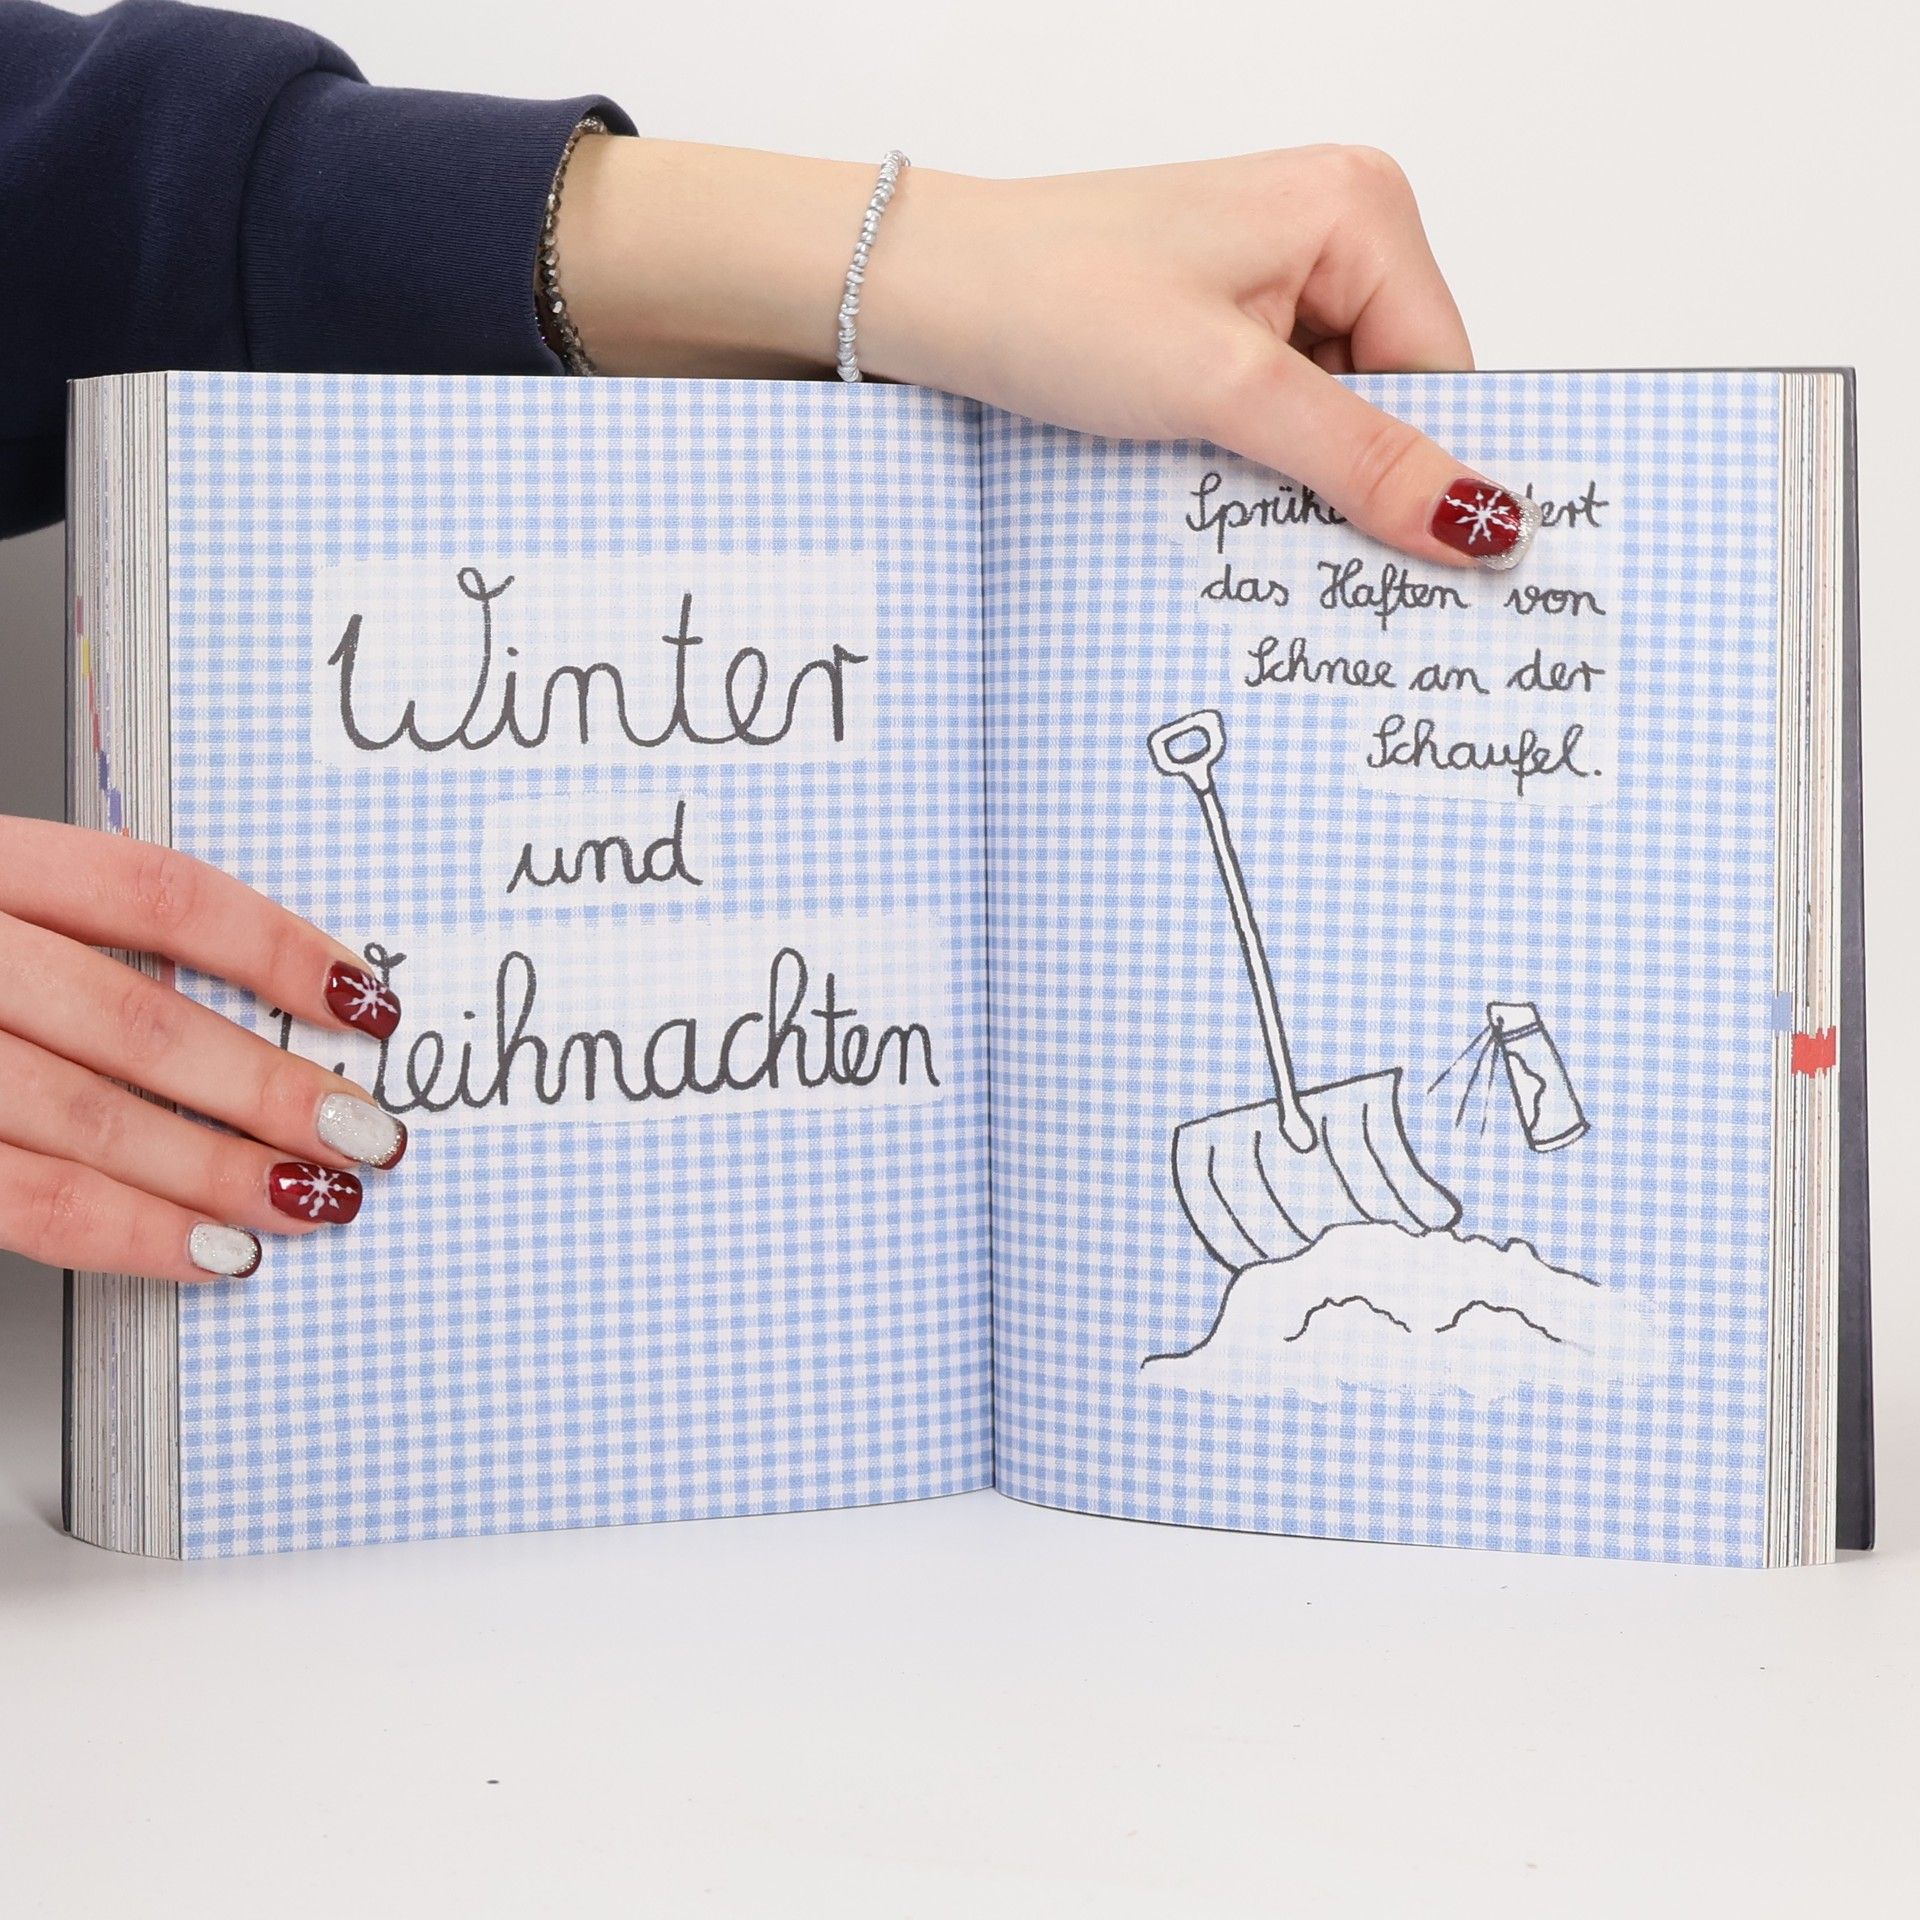 Winter
und
Weihnachten
das Haften von
Schnee an der
Schaufel.